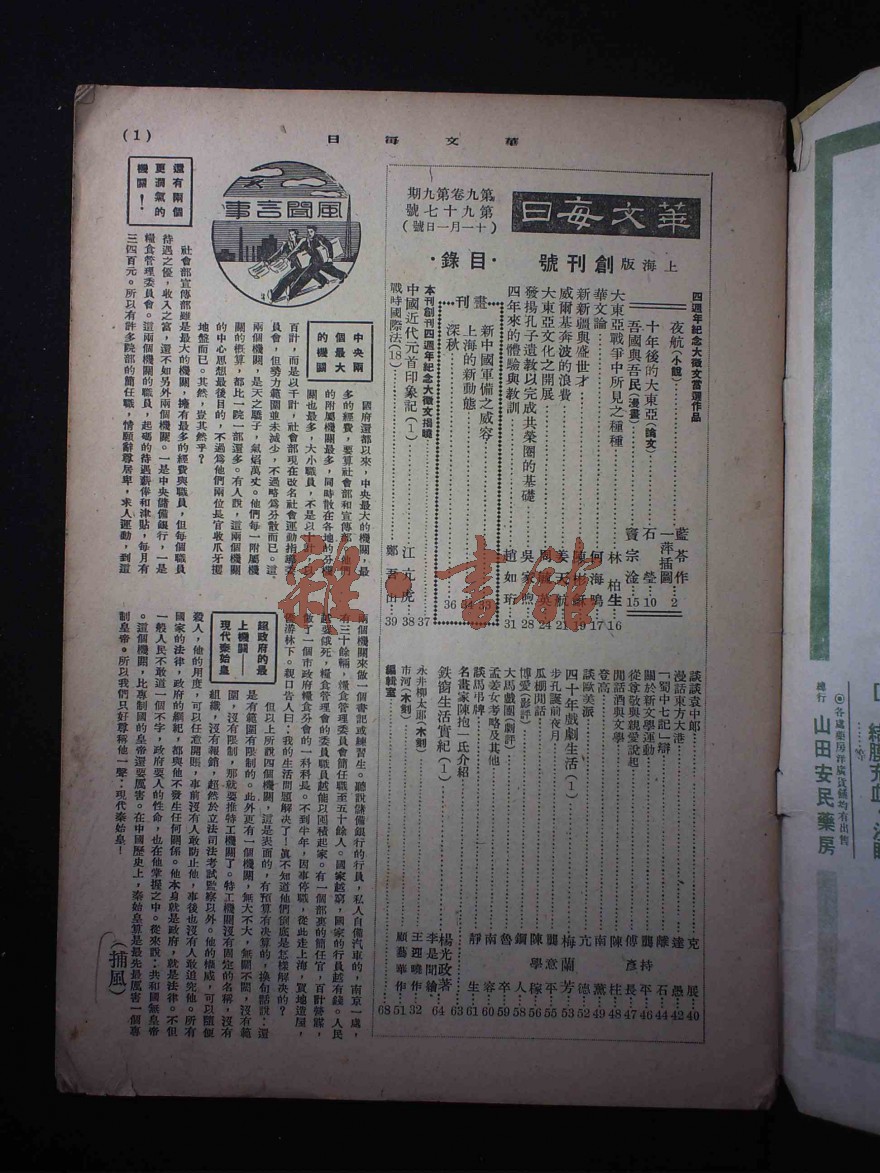 (1)
日每文華
華文每日
第九卷第九期
第九十七號
(十一月一日號)
上海版創刊號
·目錄·
四週年紀念大徵文當選作品
夜航(小說) 藍苓作 2
一萍插圖
十年後的大東亞(論文) 石瑩 10
吾國與吾民(漫畫) 竇宗淦 15
大東亞戰爭中所見之種種 林柏生 16
華文論 何海鳴 17
新新疆與盛世才 陳彬龢 19
威爾基奔波的浪費 姜天航 21
大東亞文化之開展 24
發揚孔子遺教以完成共榮圈的基礎 吳家煦 28
四年來的體驗與教訓 趙如珩 31
畫刊
新中國軍備之威容 33
上海的新動態 34
深秋 36
本刊創刊四週年紀念大徵文揭曉 37
中國近代元首印象記(1) 江亢虎 38
戰時國際法(18) 鄭吾山 39
談談袁中郎 克展 40
漫話東方大港 達愚 42
「蜀中七記」辯 離石 44
關於新文學運動 龔持平 46
從尊敬與親愛說起 傅彥長 47
閒話酒與文學 陳柱 48
登高 南薰 49
談歐美派 亢德 52
四十年戲劇生活(1) 梅蘭芳 53
步孔誕前夜月 龔意平 55
瓜棚閒話 陳學稼 56
博愛(影評) 鋼人 58
大馬戲團(劇評) 魯卒 59
孟姜女考略及其他 南容 60
談馬弔牌 靜生 61
名畫家陳抱一氏介紹 63
鐵窗生活實紀(1) 楊光政著 64
李是聞繪
永井柳太郎(木刻) 王迎曉作 32
市河(木刻) 顧藝華作 51
編輯室 68
風聞言事
中央兩個最大的機關
國府還都以來,中央最大的機關,最多的經費,要算社會部和宣傳部。他們的附屬機關最多,同時散在各地的分機關也最多,大小職員,不是以百計,而是以千計,社會部現在改名社會運動指導委員會,但勢力範圍並未減少,不過略為分散而已。這兩個機關,是天之驕子,氣焰萬丈。他們每一附屬機關的概算,都比一院一部還多。有人說,這兩個機關的中心思想最後目的,不過為他們兩位長官收爪牙擺地盤而已。其然,豈其然乎?
還有兩個更濶氣的機關!
社會部宣傳部雖是最大的機關,擁有最多的經費與職員,但每個職員待遇之優,收入之富,還不如另外兩個機關。一是中央儲備銀行,一是糧食管理委員會。這兩個機關的職員,起碼的待遇薪俸和津貼,每月有三四百元。所以有許多院部的簡任職,情願辭尊居卑,求人運動,到這兩個機關來做一個書記或練習生。聽說儲備銀行的行員,私人自備汽車的,南京一處,有三十餘輛,糧食管理委員會簡任職至五十餘人。國家越窮,國家的行員越有錢。人民越要餓死,糧食管理會的委員職員越能以囤積起家。有一個部裏的簡任官,百計營謀,做了一個市政府糧食分會的一科科長。不到半年,因事停職,從此走上海,買地造屋,優游林下。親口告人曰:我的生活問題解決了!眞不知道他們倒底是怎樣解決的?
超政府的最上機關——現代秦始皇
但以上所說四個機關,這是表面的,有預算有决算的,換句話說:還是有範圍有限制的。此外更有一個機關,無大不大,無關不關,沒有範圍,沒有限制,那就要推特工機關了。特工機關沒有固定的名稱,沒有組織,沒有報銷,超然於立法司法考試監察以外。他的權威,可以隨便殺人,他的用度,可以任意開賬,事前沒有人敢防止他,事後也沒有人敢追究他。所有國家的法律,政府的綱紀,都與他不發生任何關係。他本身就是政府,就是法律。不但一般人民不敢道一個不字,政府要人的性命,也在他掌握之中。從來說:共和國無皇帝。這個機關,比專制國的皇帝還要厲害。在中國歷史上,秦始皇算是最先最厲害一個專制皇帝。所以我們只好尊稱他一聲:現代秦始皇!
(捕風)
雜·書館
各處藥房洋廣貨舖均有出售
總行 山田安民藥房